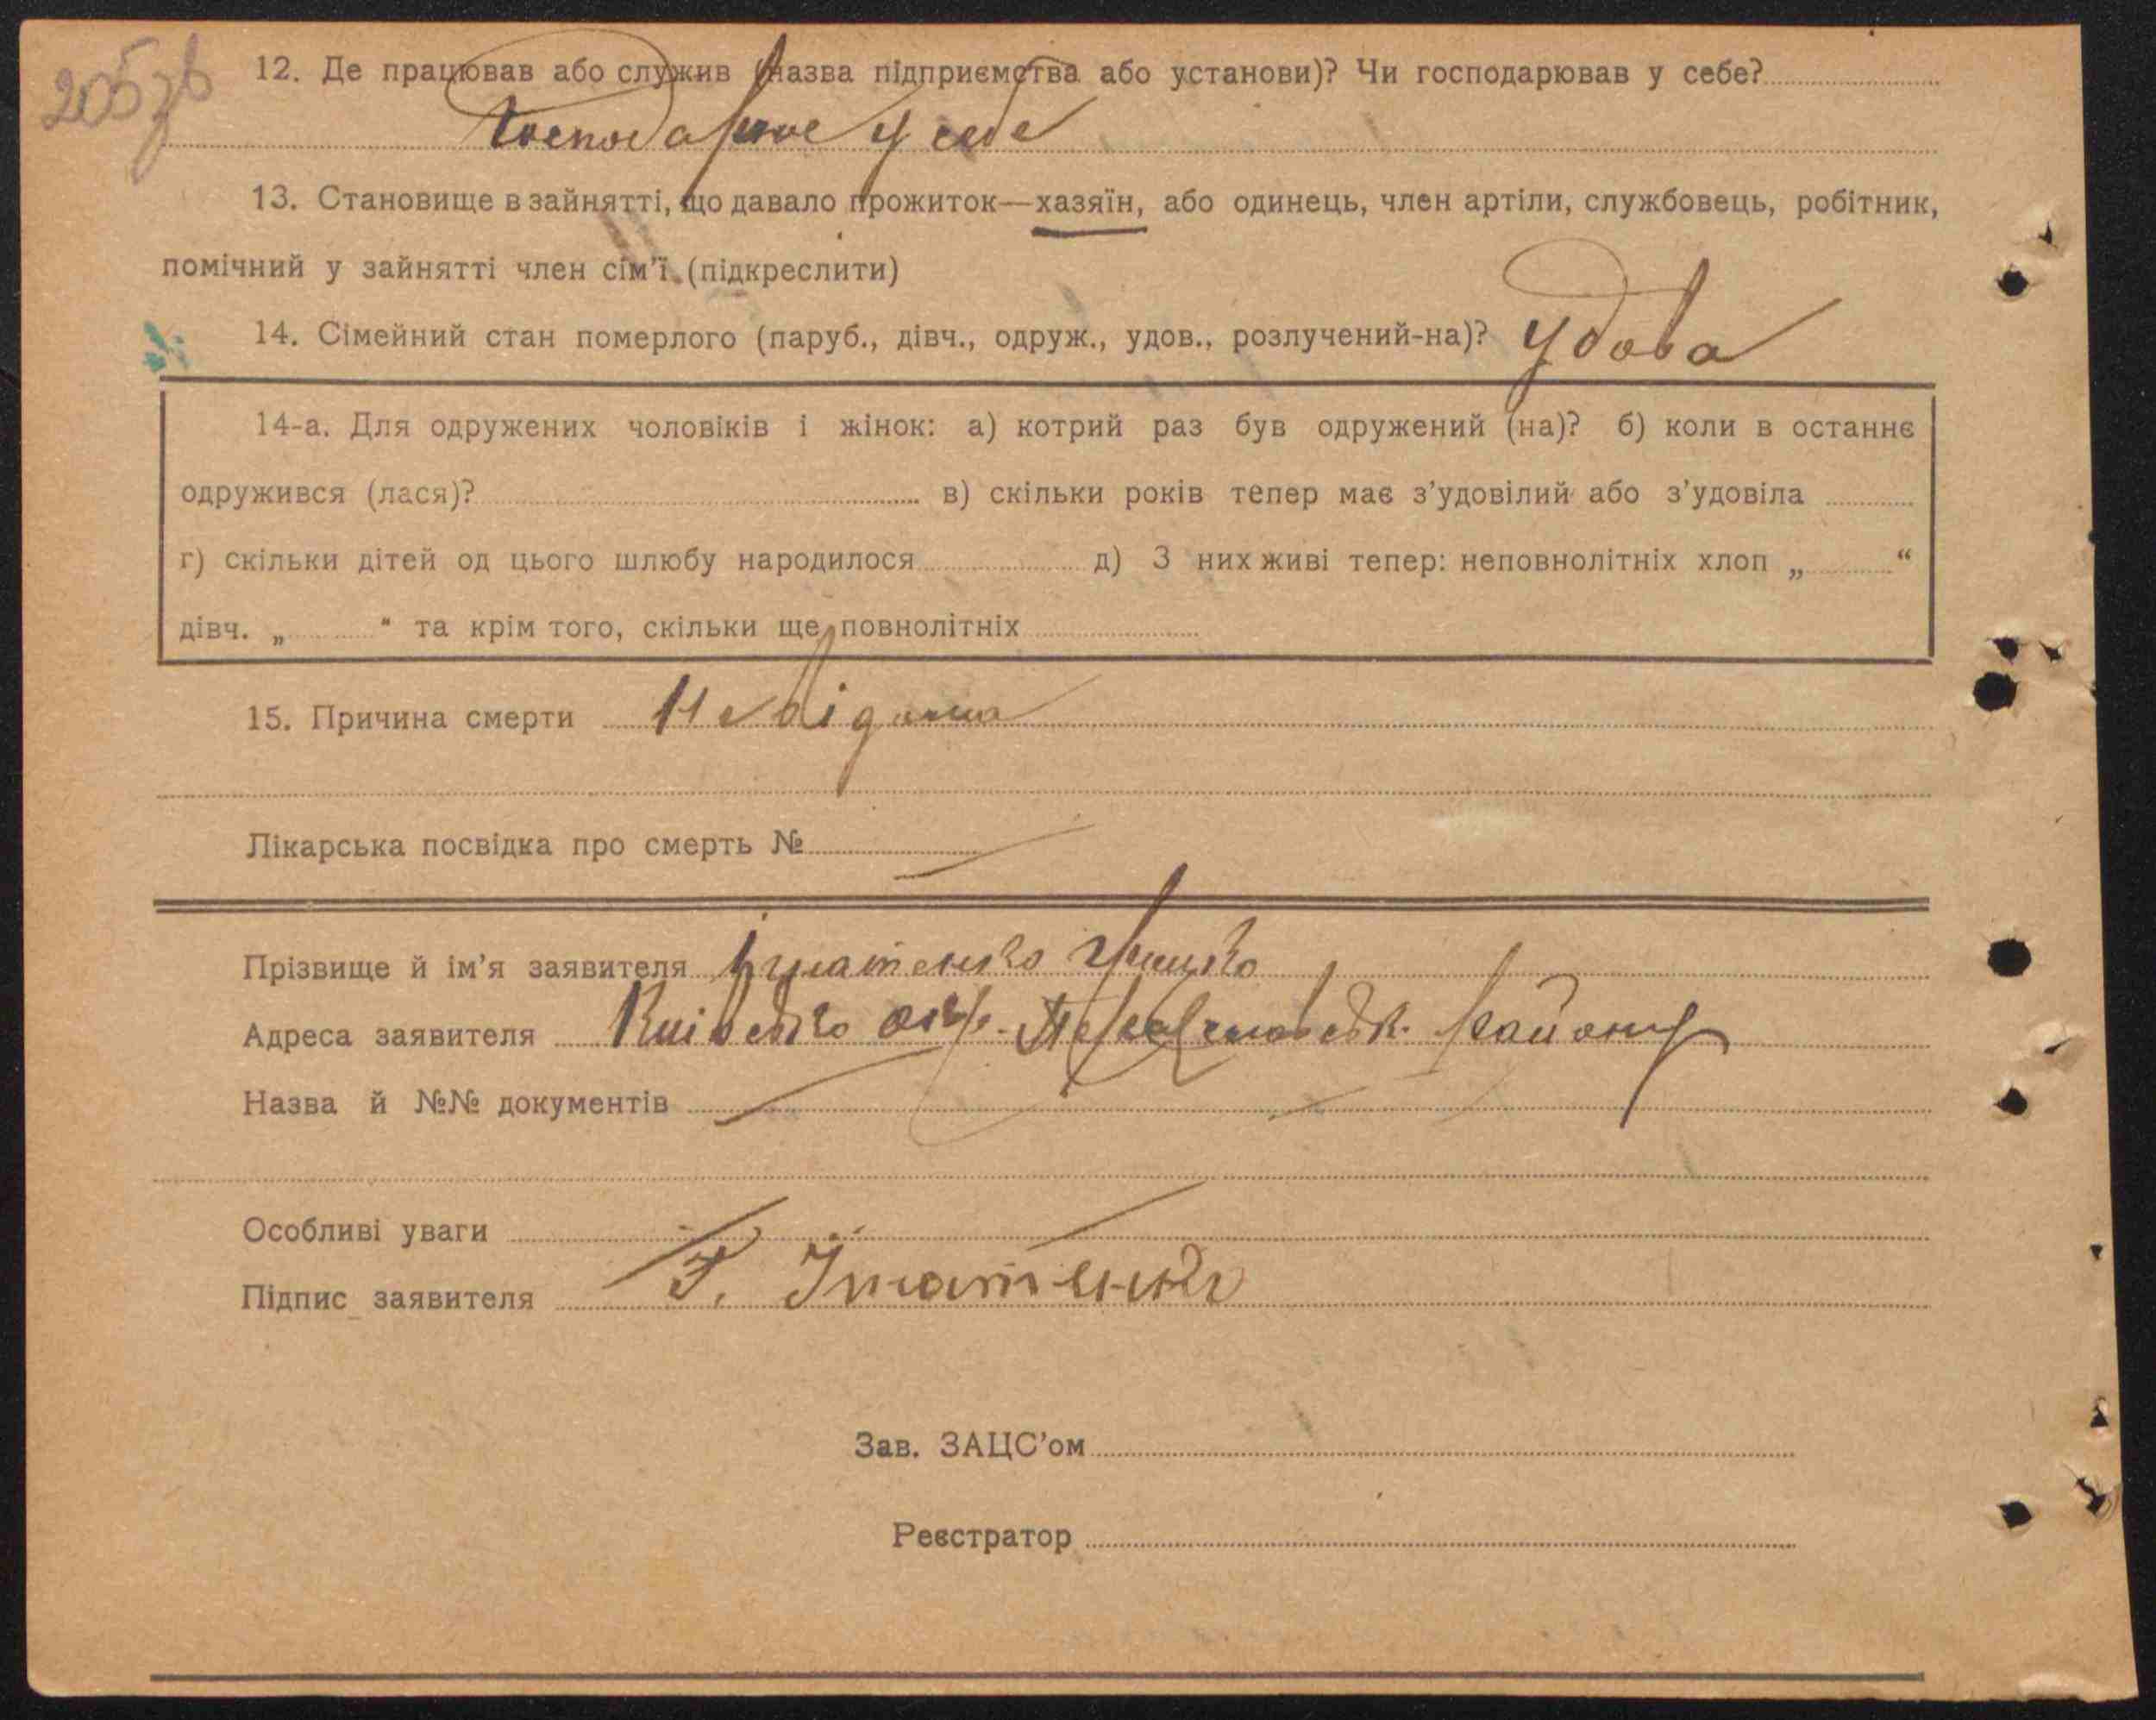 205зв
12. Де працював або служив (назва підприємства або установи)? Чи господарював у себе?
Господарює у себе
13. Становище в зайнятті, що давало прожиток—хазяїн, або одинець, член артіли, службовець, робітник,
помічний у зайнятті член сім’ї (підкреслити)
14. Сімейний стан померлого (паруб., дівч., одруж., удов., розлучений-на)? Удова
14-а. Для одружених чоловіків і жінок: а) котрий раз був одружений (на)? б) коли в останнє
одружився (лася)? в) скільки років тепер має з’удовілий або з’удовіла
г) скільки дітей од цього шлюбу народилося д) З них живі тепер: неповнолітніх хлоп „ “
дівч. „ “ та крім того, скільки ще повнолітніх
15. Причина смерти Невідома
Лікарська посвідка про смерть №
Прізвище й ім’я заявителя Ігнатенко Грицко
Адреса заявителя Київсько окр. району
Назва й №№ документів
Особливі уваги
Підпис заявителя Г. Ігнатенко
Зав. ЗАЦС’ом
Реєстратор